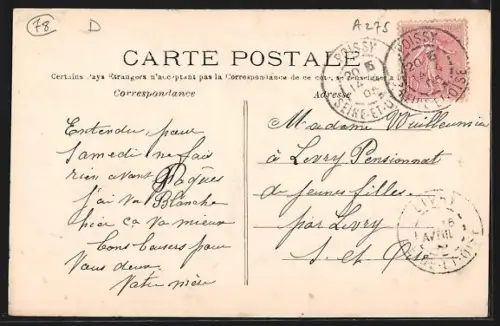 78 D A 275
CARTE POSTALE
Certains Pays Étrangers n'acceptent pas la Correspondance de ce côté, se renseigner à la
Correspondance
Adresse
POISSY
20
SEINE-ET-OISE
POISSY
20
SEINE-ET-OISE
Entendu pour
Samedi ne fais
rien avant Pâques
j'ai vu Blanche
hier ça va mieux
Bons baisers pour
Vous deux
Votre mère
Madame Vuilleumier
à Livry Pensionnat
de jeunes filles
par Livry
S. et Oise
LIVRY
AVRIL
SEINE-ET-OISE